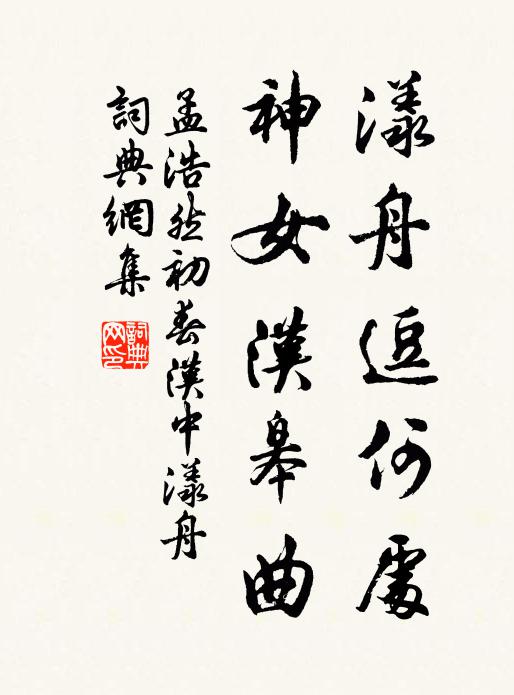 漾舟逗何處
神女漢皋曲
孟浩然初春漢中漾舟
詞典網集
詞典網印